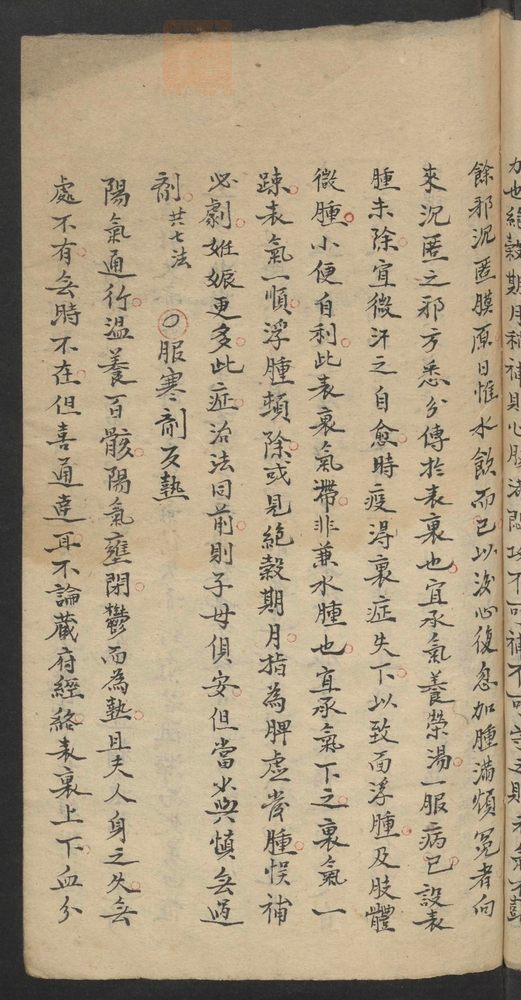 餘邪沉匿膜原日惟水飲而已以後心復忽加腫滿煩冤者向
來沉匿之邪方悉分傳於表裏也宜承氣養榮湯一服病已設表
腫未除宜微汗之自愈時疫得裏症失下以致面浮腫及肢體
微腫小便自利此表裏氣滯非兼水腫也宜承氣下之裏氣一
踈表氣一順浮腫頓除或見絕穀期月指為脾虛發腫悞補
必劇姙娠更多此症治法同前則子母俱安但當少與慎無過
劑 共七法 〇服寒劑反熱
陽氣通行溫養百骸陽氣壅閉鬱而為熱且夫人身之火無
處不有無時不在但喜通達耳不論藏府經絡表裏上下血分